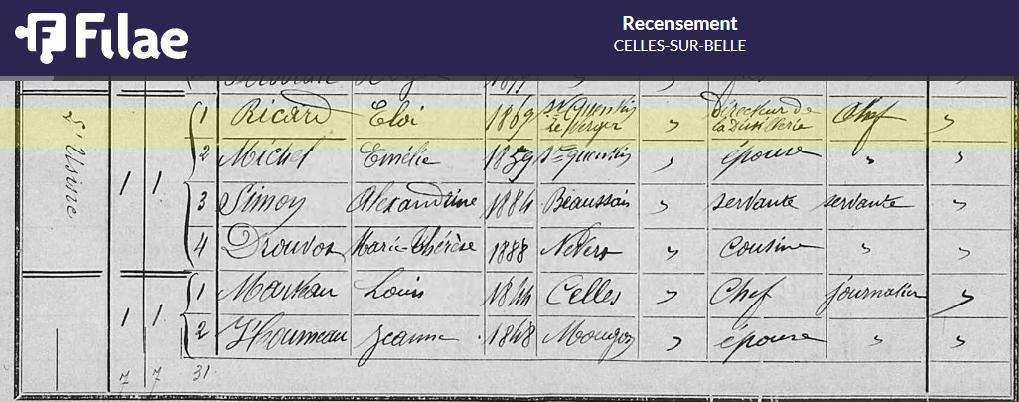 Filae
Recensement
CELLES-SUR-BELLE
L'Usine
1 Ricard Eloi 1869 St Quentin le Verger " Directeur de la Distillerie Chef "
2 Michel Emélie 1859 St Quentin " épouse " "
1 1
3 Simon Alexandrine 1884 Beaussais " servante servante "
4 Drouvos Marie-Thérèse 1888 Nevers " cousine " "
1 Louis 1844 Celles " Chef journalier "
1 1
2 Jeanne 1848 Mougon " épouse " "
7 7 31